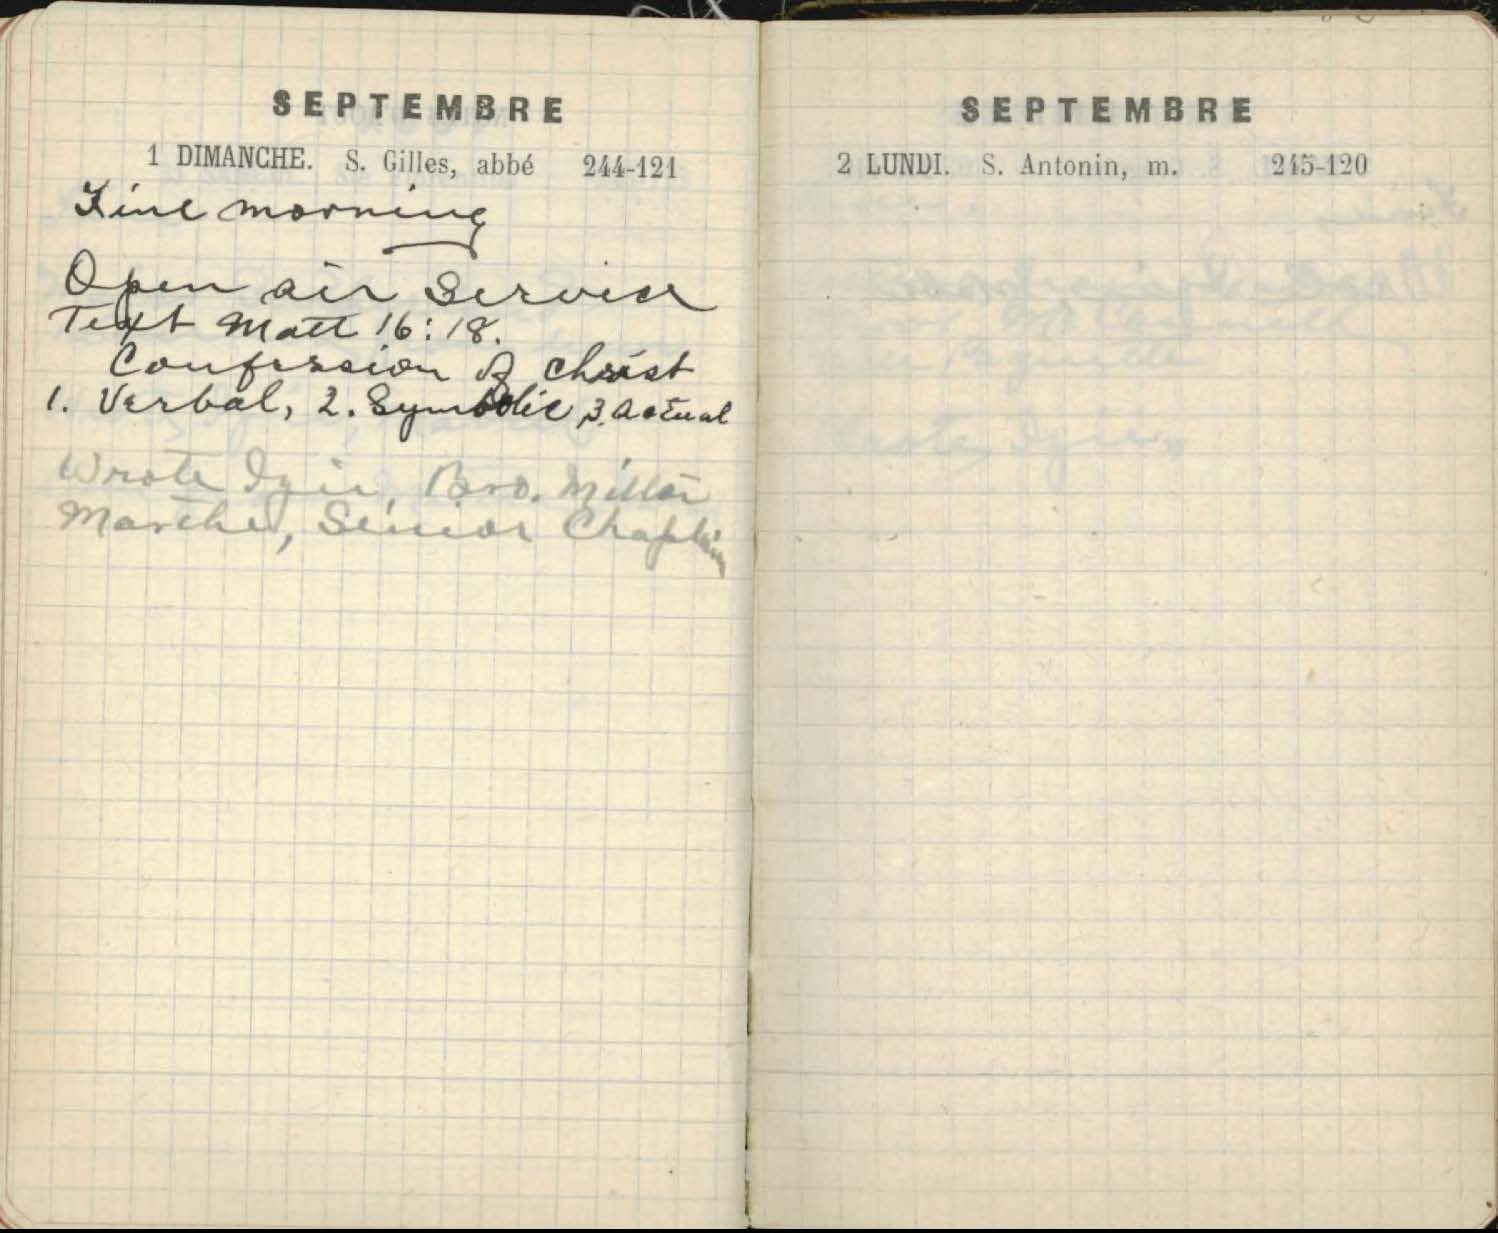 SEPTEMBRE
1 DIMANCHE. S. Gilles, abbé 244-121
Fine morning
Open air Service
Text Matt 16:18.
Confession of Christ
1. Verbal, 2. Symbolic 3. Actual
Wrote Bro. Millar
Senior Chaplain
SEPTEMBRE
2 LUNDI. S. Antonin, m. 245-120